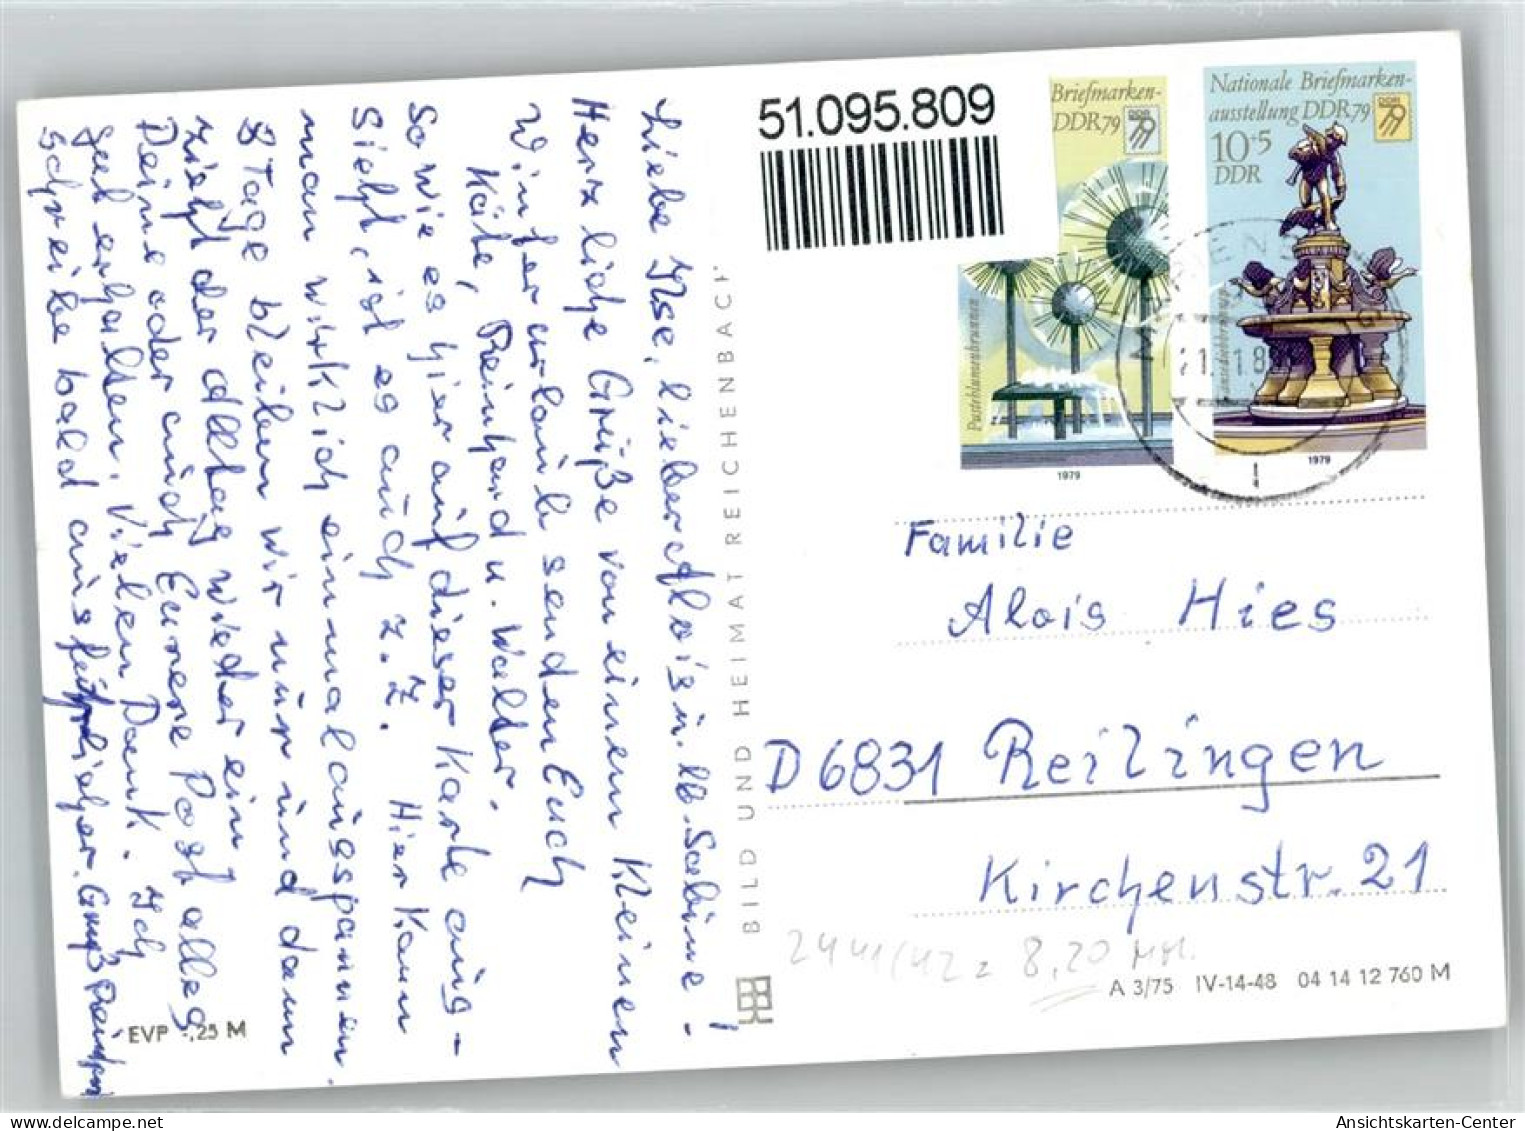 Liebe Ilse, lieber Alois u. lb. Sabine!
Herzliche Grüße von einem kleinen
Winterurlaub senden Euch
Käte, Reinhard u. Walter.
So wie es hier auf dieser Karte aus-
sieht, ist es auch z. Z. Hier kann
man wirklich einmal ausspannen.
8 Tage bleiben wir nur und dann
zieht der Alltag wieder ein.
Deine oder auch Eure Post alles
gut erhalten. Vielen Dank. Ich
schreibe bald ausführlicher. Gruß
EVP -,25 M
BILD UND HEIMAT REICHENBACH
51.095.809
Briefmarken-
DDR 79
Pusteblumenbrunnen
1979
Nationale Briefmarken-
ausstellung DDR 79
10+5
DDR
1979
Familie
Alois Hies
D 6831 Reilingen
Kirchenstr. 21
A 3/75 IV-14-48 04 14 12 760 M
Ansichtskarten-Center